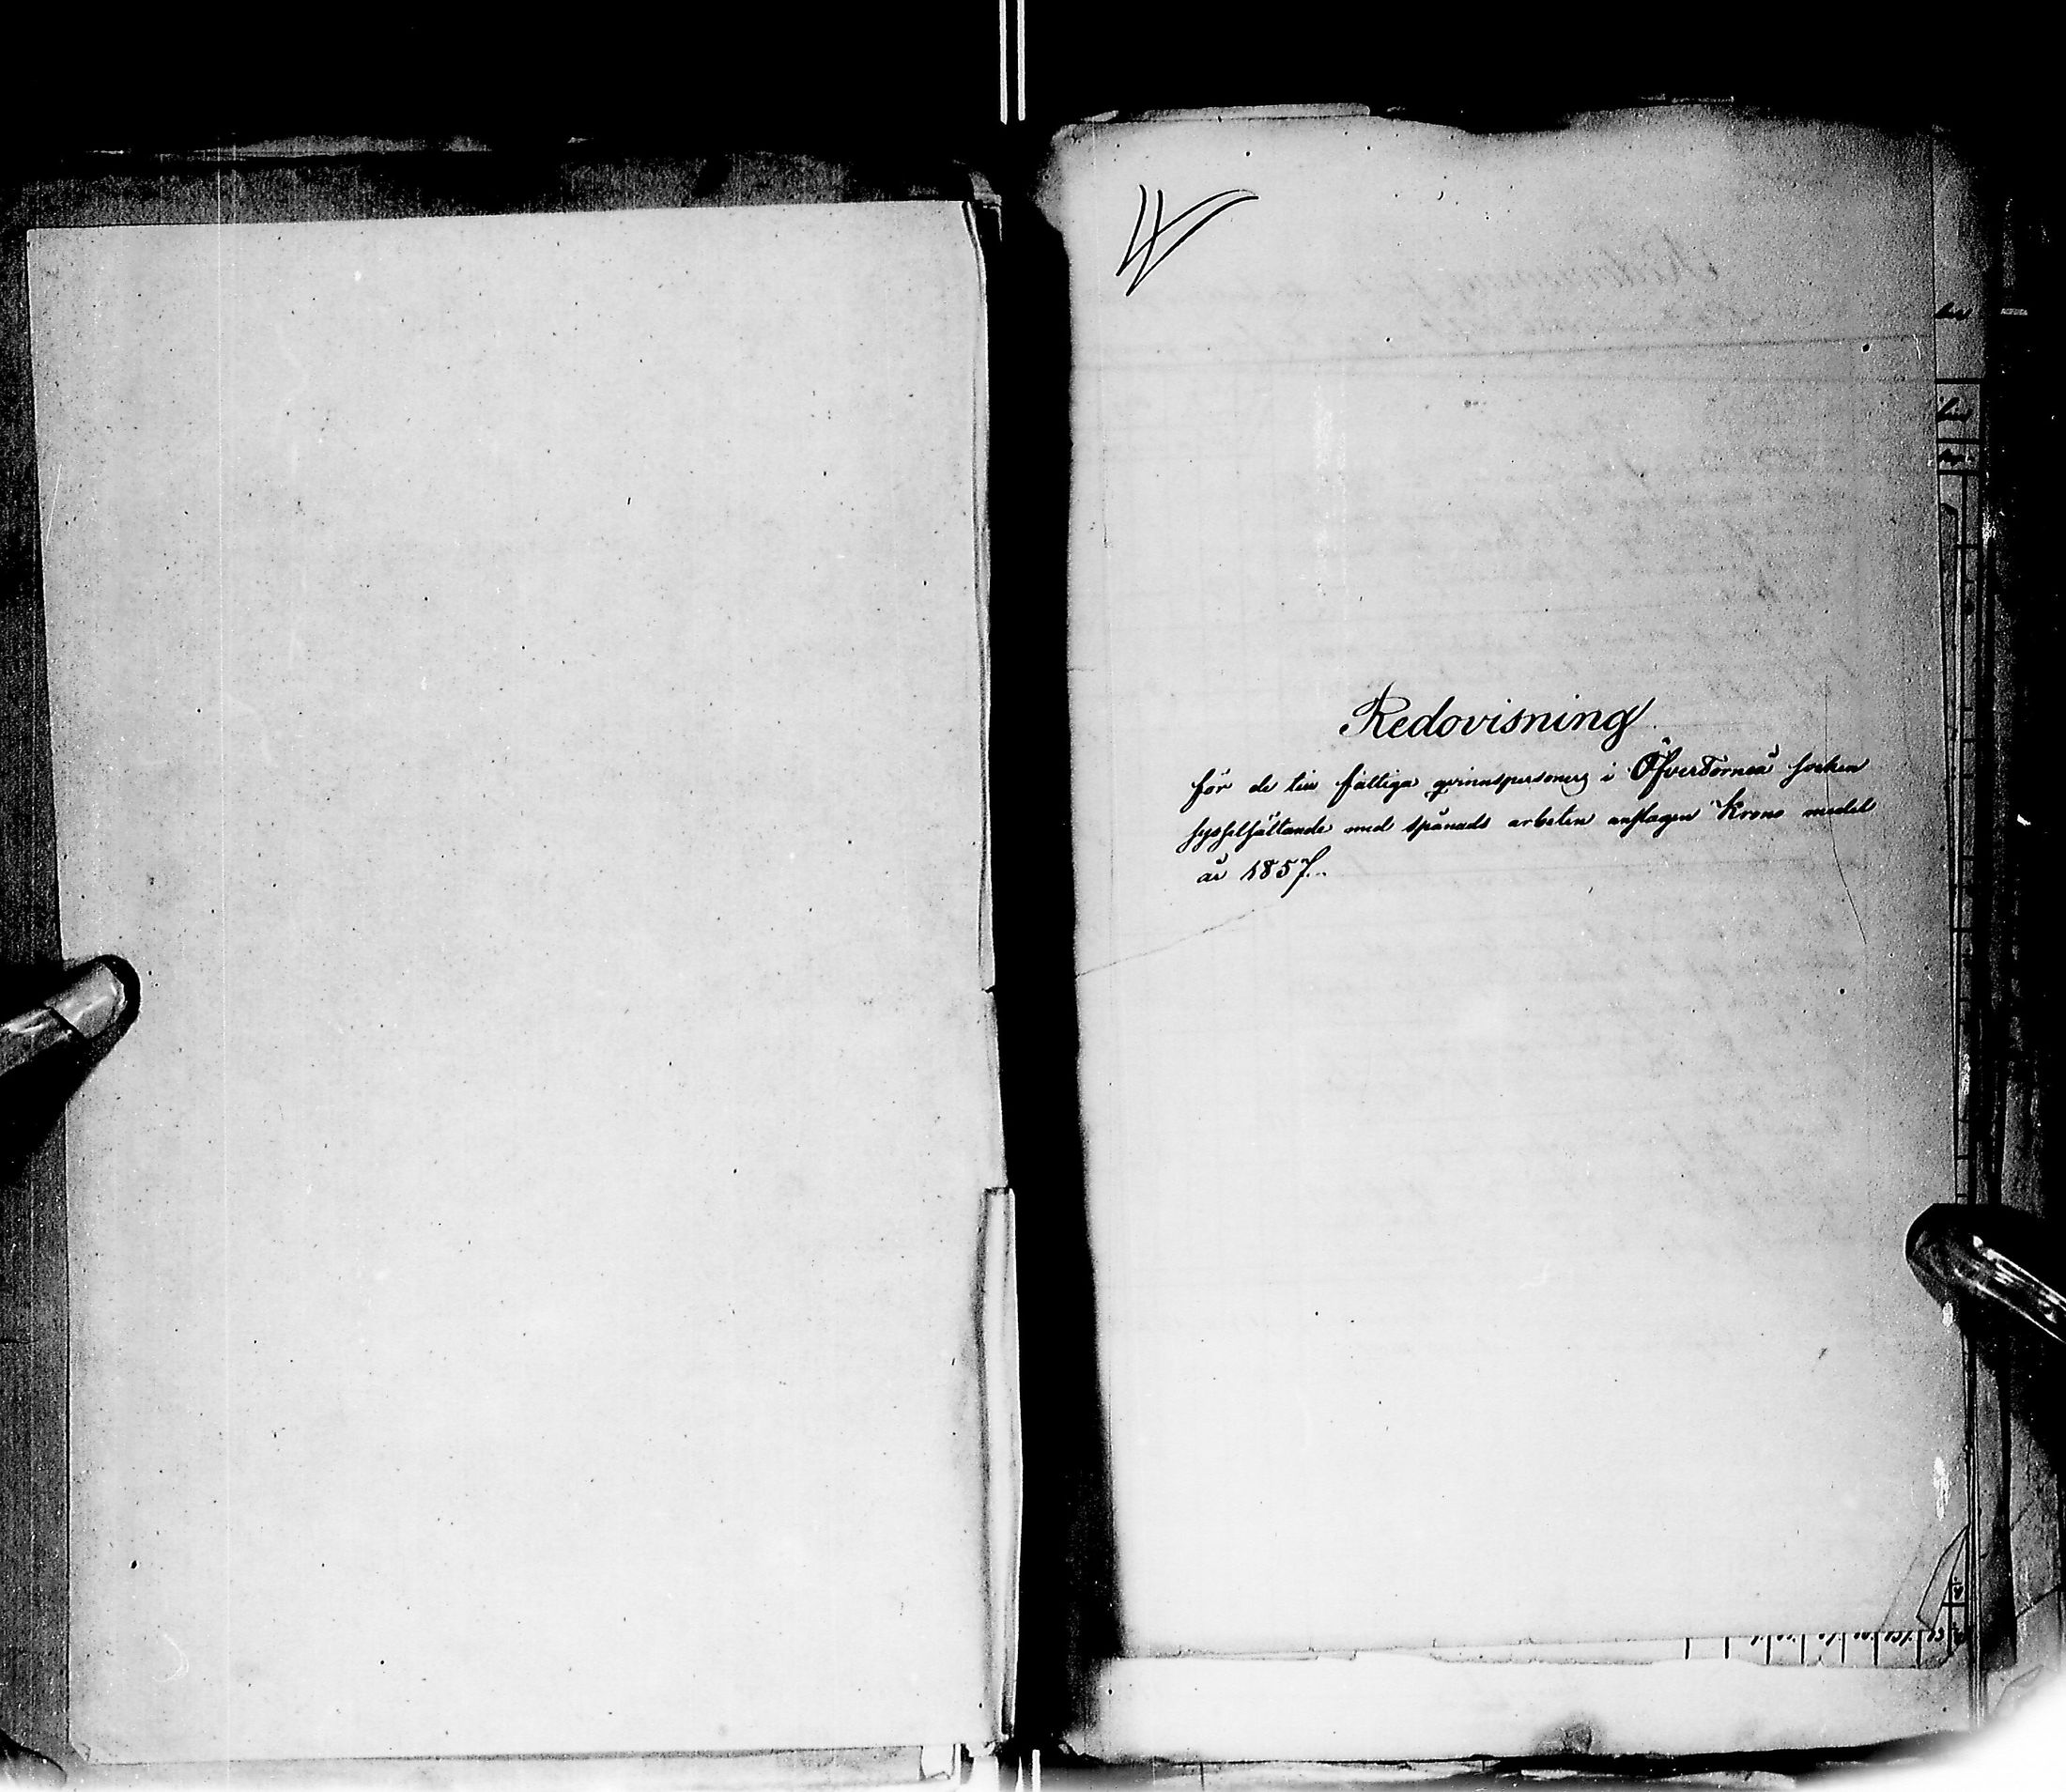 Redovisning
för de till fattiga qvinnspersoners i ÖfverTorneå Socken
sysselsättande med spånads arbeten anslagen Krono medel
år 1857.